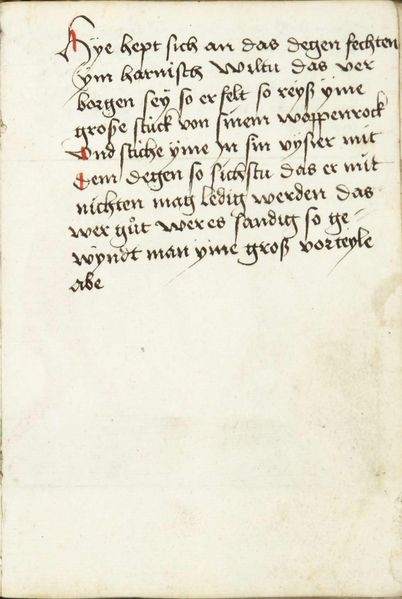 Hye hept sich an das degen fechten
ym harnisch wiltu das ver
borgen sey so er felt so reyß yme
große stuck von sinem woppenrock
vnd stiche yme jn sin vysier mit
dem degen so sichstu das er mit
nichten mag ledig werden das
wer gůt wer es sandig so ge-
wyndt man yme groß vorteyle
abe